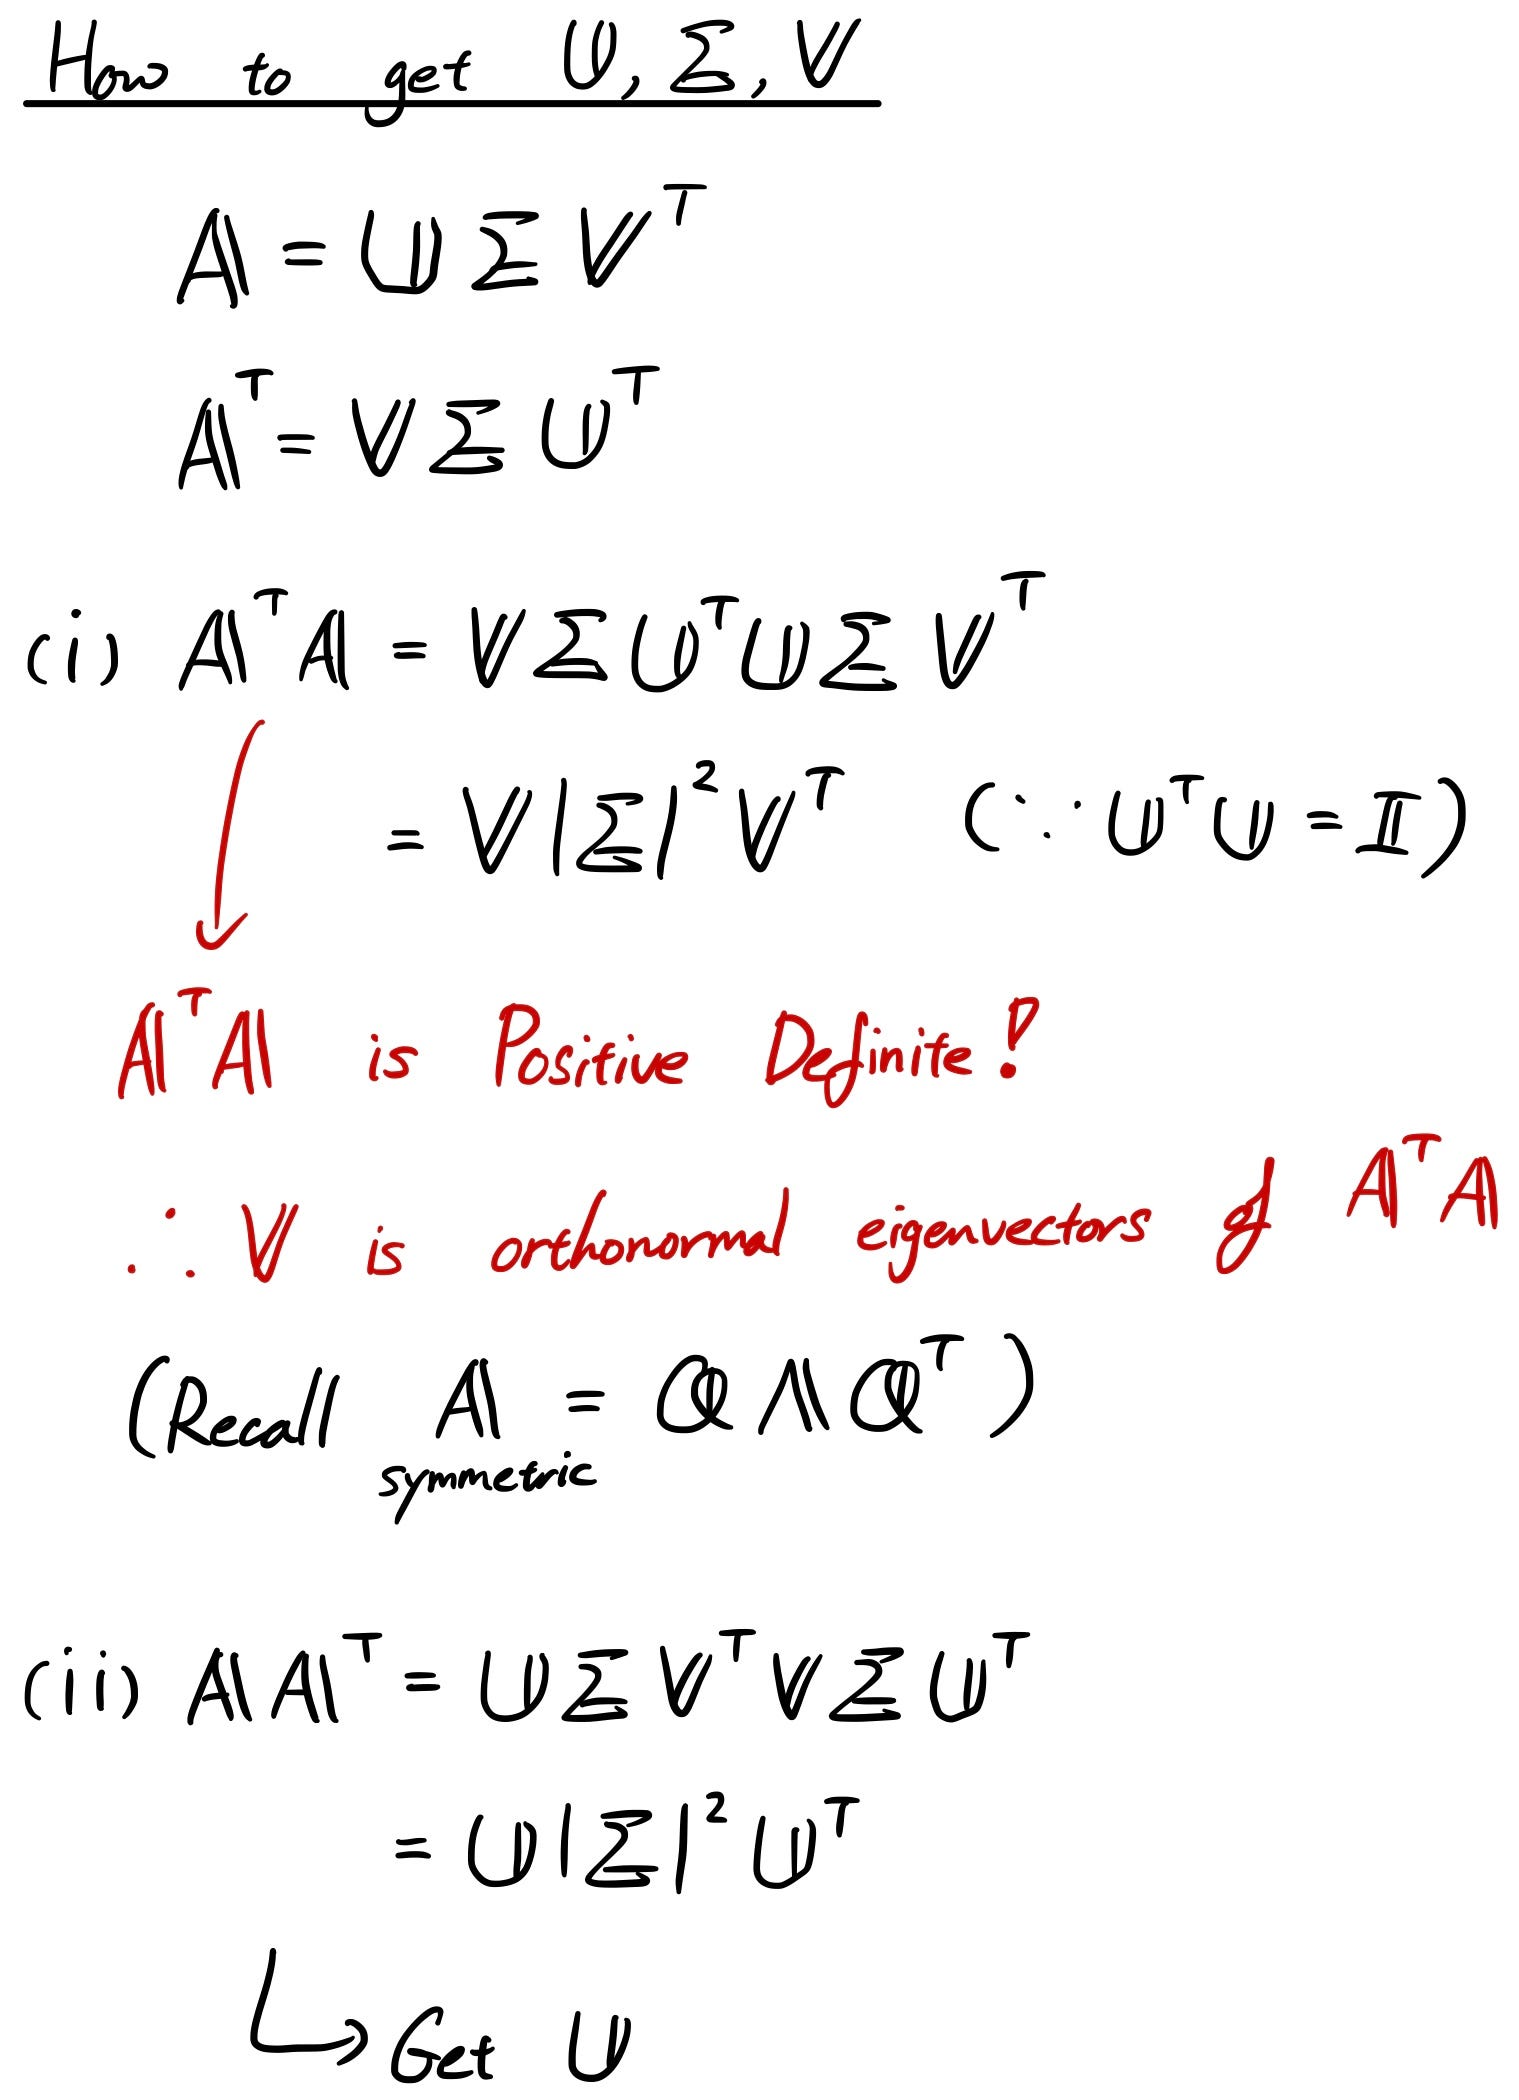 How to get 𝕌, Σ, 𝕍
𝔸 = 𝕌 Σ 𝕍ᵀ
𝔸ᵀ = 𝕍 Σ 𝕌ᵀ
(i) 𝔸ᵀ𝔸 = 𝕍 Σ 𝕌ᵀ 𝕌 Σ 𝕍ᵀ
= 𝕍 |Σ|² 𝕍ᵀ (∵ 𝕌ᵀ𝕌 = 𝕀)
𝔸ᵀ𝔸 is Positive Definite!
∴ 𝕍 is orthonormal eigenvectors of 𝔸ᵀ𝔸
(Recall 𝔸 = ℚ Λ ℚᵀ)
symmetric
(ii) 𝔸𝔸ᵀ = 𝕌 Σ 𝕍ᵀ 𝕍 Σ 𝕌ᵀ
= 𝕌 |Σ|² 𝕌ᵀ
↳ Get 𝕌